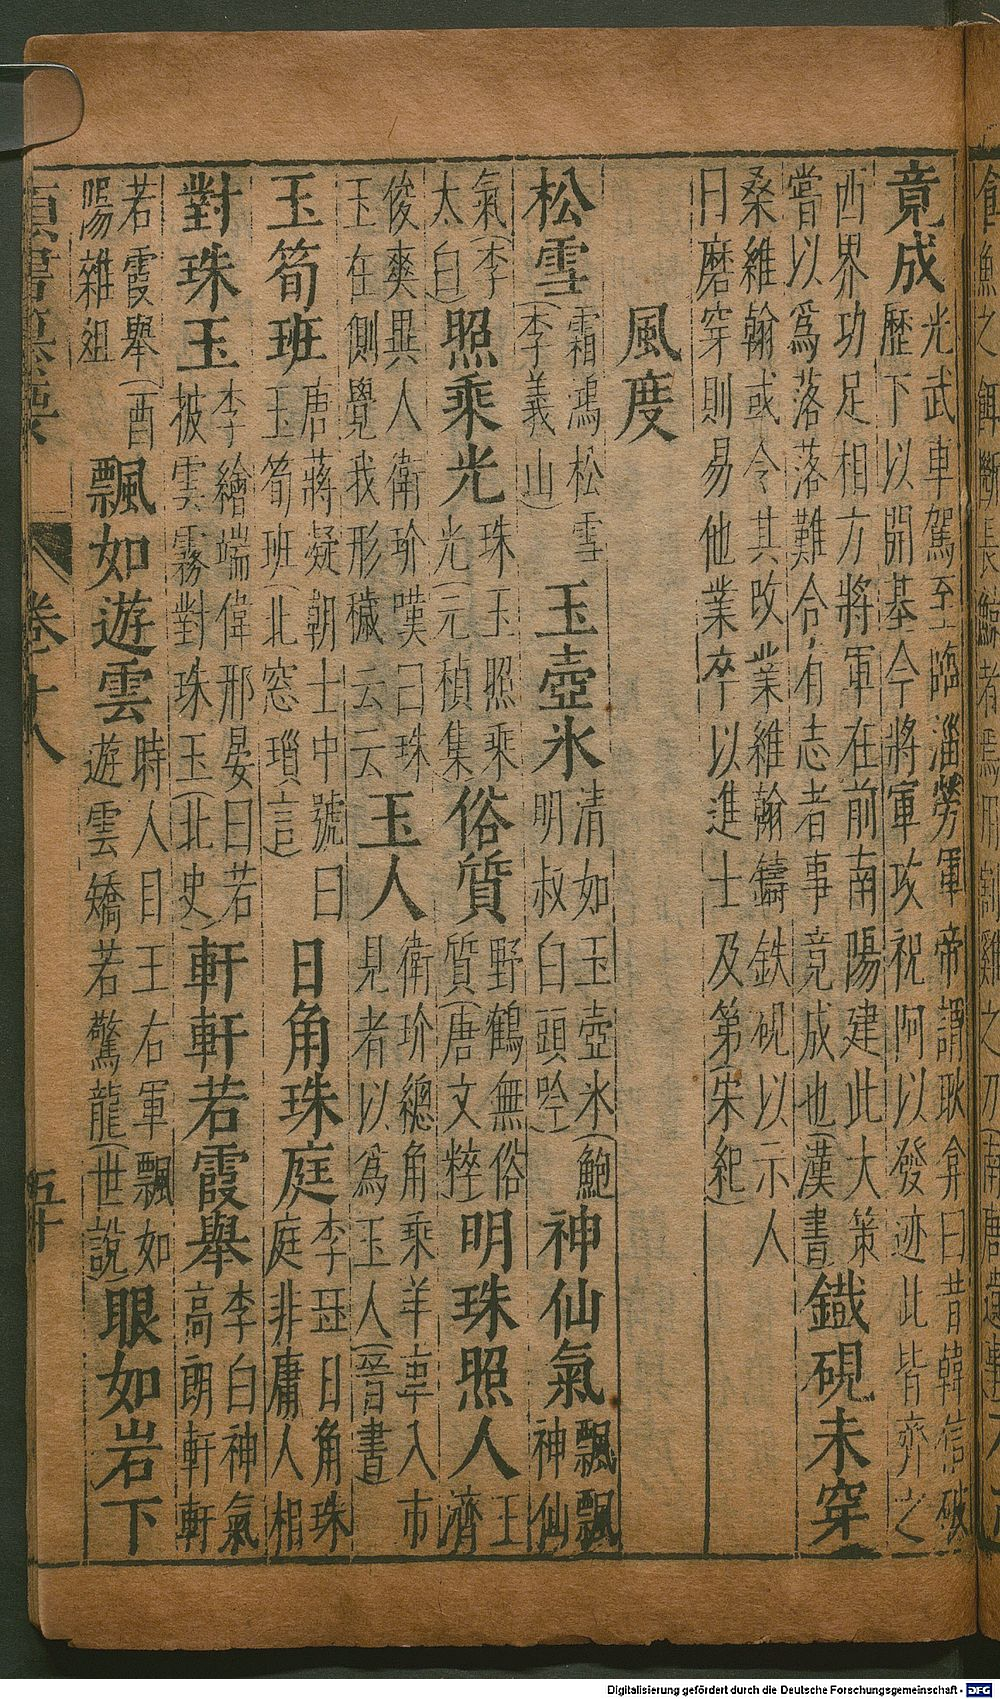 竟成 光武車駕至臨淄勞軍帝謂耿弇曰昔韓信破
歷下以開基今將軍攻祝阿以發迹此皆齊之
西界功足相方將軍在前南陽建此大策
嘗以爲落落難合有志者事竟成也(漢書)
鐵硯未穿
桑維翰或令其改業維翰鑄鉄硯以示人
曰磨穿則易他業卒以進士及第(宋紀)
風度
松雪 霜鴻松雪(李義山)
玉壺氷 清如玉壺氷(鮑明叔白頭吟)
神仙氣 飄飄神仙
氣(李太白)
照乘光 珠玉照乘光(元稹集)
俗質 野鶴無俗質(唐文粹)
明珠照人 王濟
俊爽異人衛玠嘆曰珠玉在側覺我形穢云云
玉人 衛玠總角乘羊車入市見者以爲玉人(晉書)
玉筍班 唐蔣凝朝士中號曰玉筍班(北窓瑣言)
日角珠庭 李珏日角珠庭非庸人相
對珠玉 李繪端偉邢晏曰若披雲霧對珠玉(北史)
軒軒若霞舉 李白神氣高朗軒軒
若霞舉(酉陽雜俎
飄如遊雲 時人目王右軍飄如遊雲矯若驚龍(世說)
眼如岩下
卷十八
五十
Digitalisierung gefördert durch die Deutsche Forschungsgemeinschaft - DFG